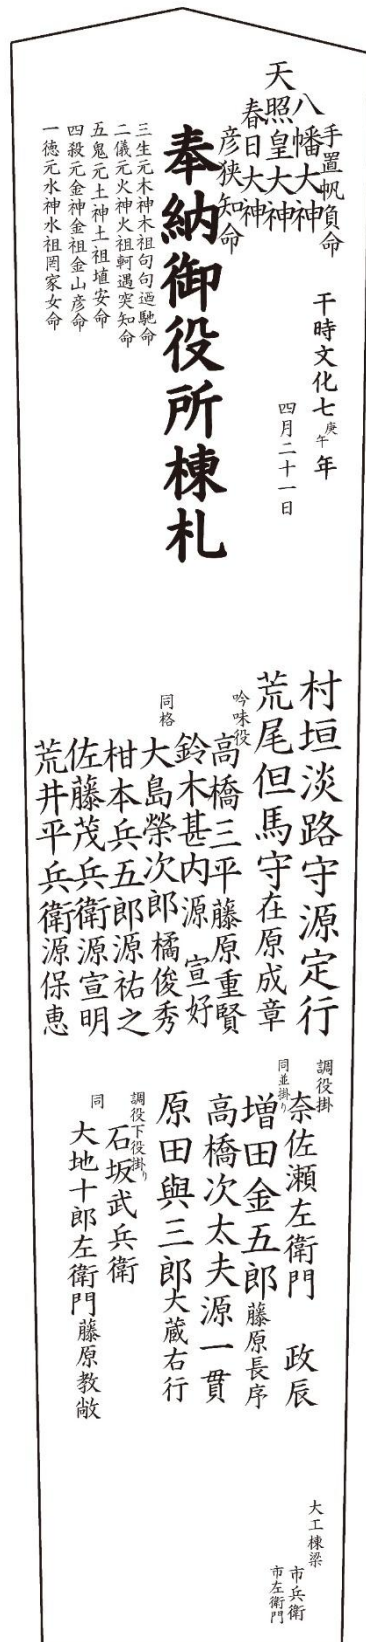 手置帆負命
八幡大神
天照皇大神
春日大神
彦狭知命
干時文化七庚午年
四月二十一日
奉納御役所棟札
三生元木神木祖句句廼馳命
二儀元火神火祖軻遇突知命
五鬼元土神土祖埴安命
四殺元金神金祖金山彦命
一徳元水神水祖罔家女命
村垣淡路守源定行
荒尾但馬守在原成章
吟味役
高橋三平藤原重賢
鈴木甚内源 宣好
同格
大島榮次郎橘俊秀
柑本兵五郎源祐之
佐藤茂兵衛源宣明
荒井平兵衛源保恵
調役掛
奈佐瀬左衛門 政辰
同並掛り
増田金五郎藤原長序
高橋次太夫源一貫
原田與三郎大蔵右行
調役下役掛り
石坂武兵衛
同
大地十郎左衛門藤原教敞
大工棟梁
市兵衛
市左衛門